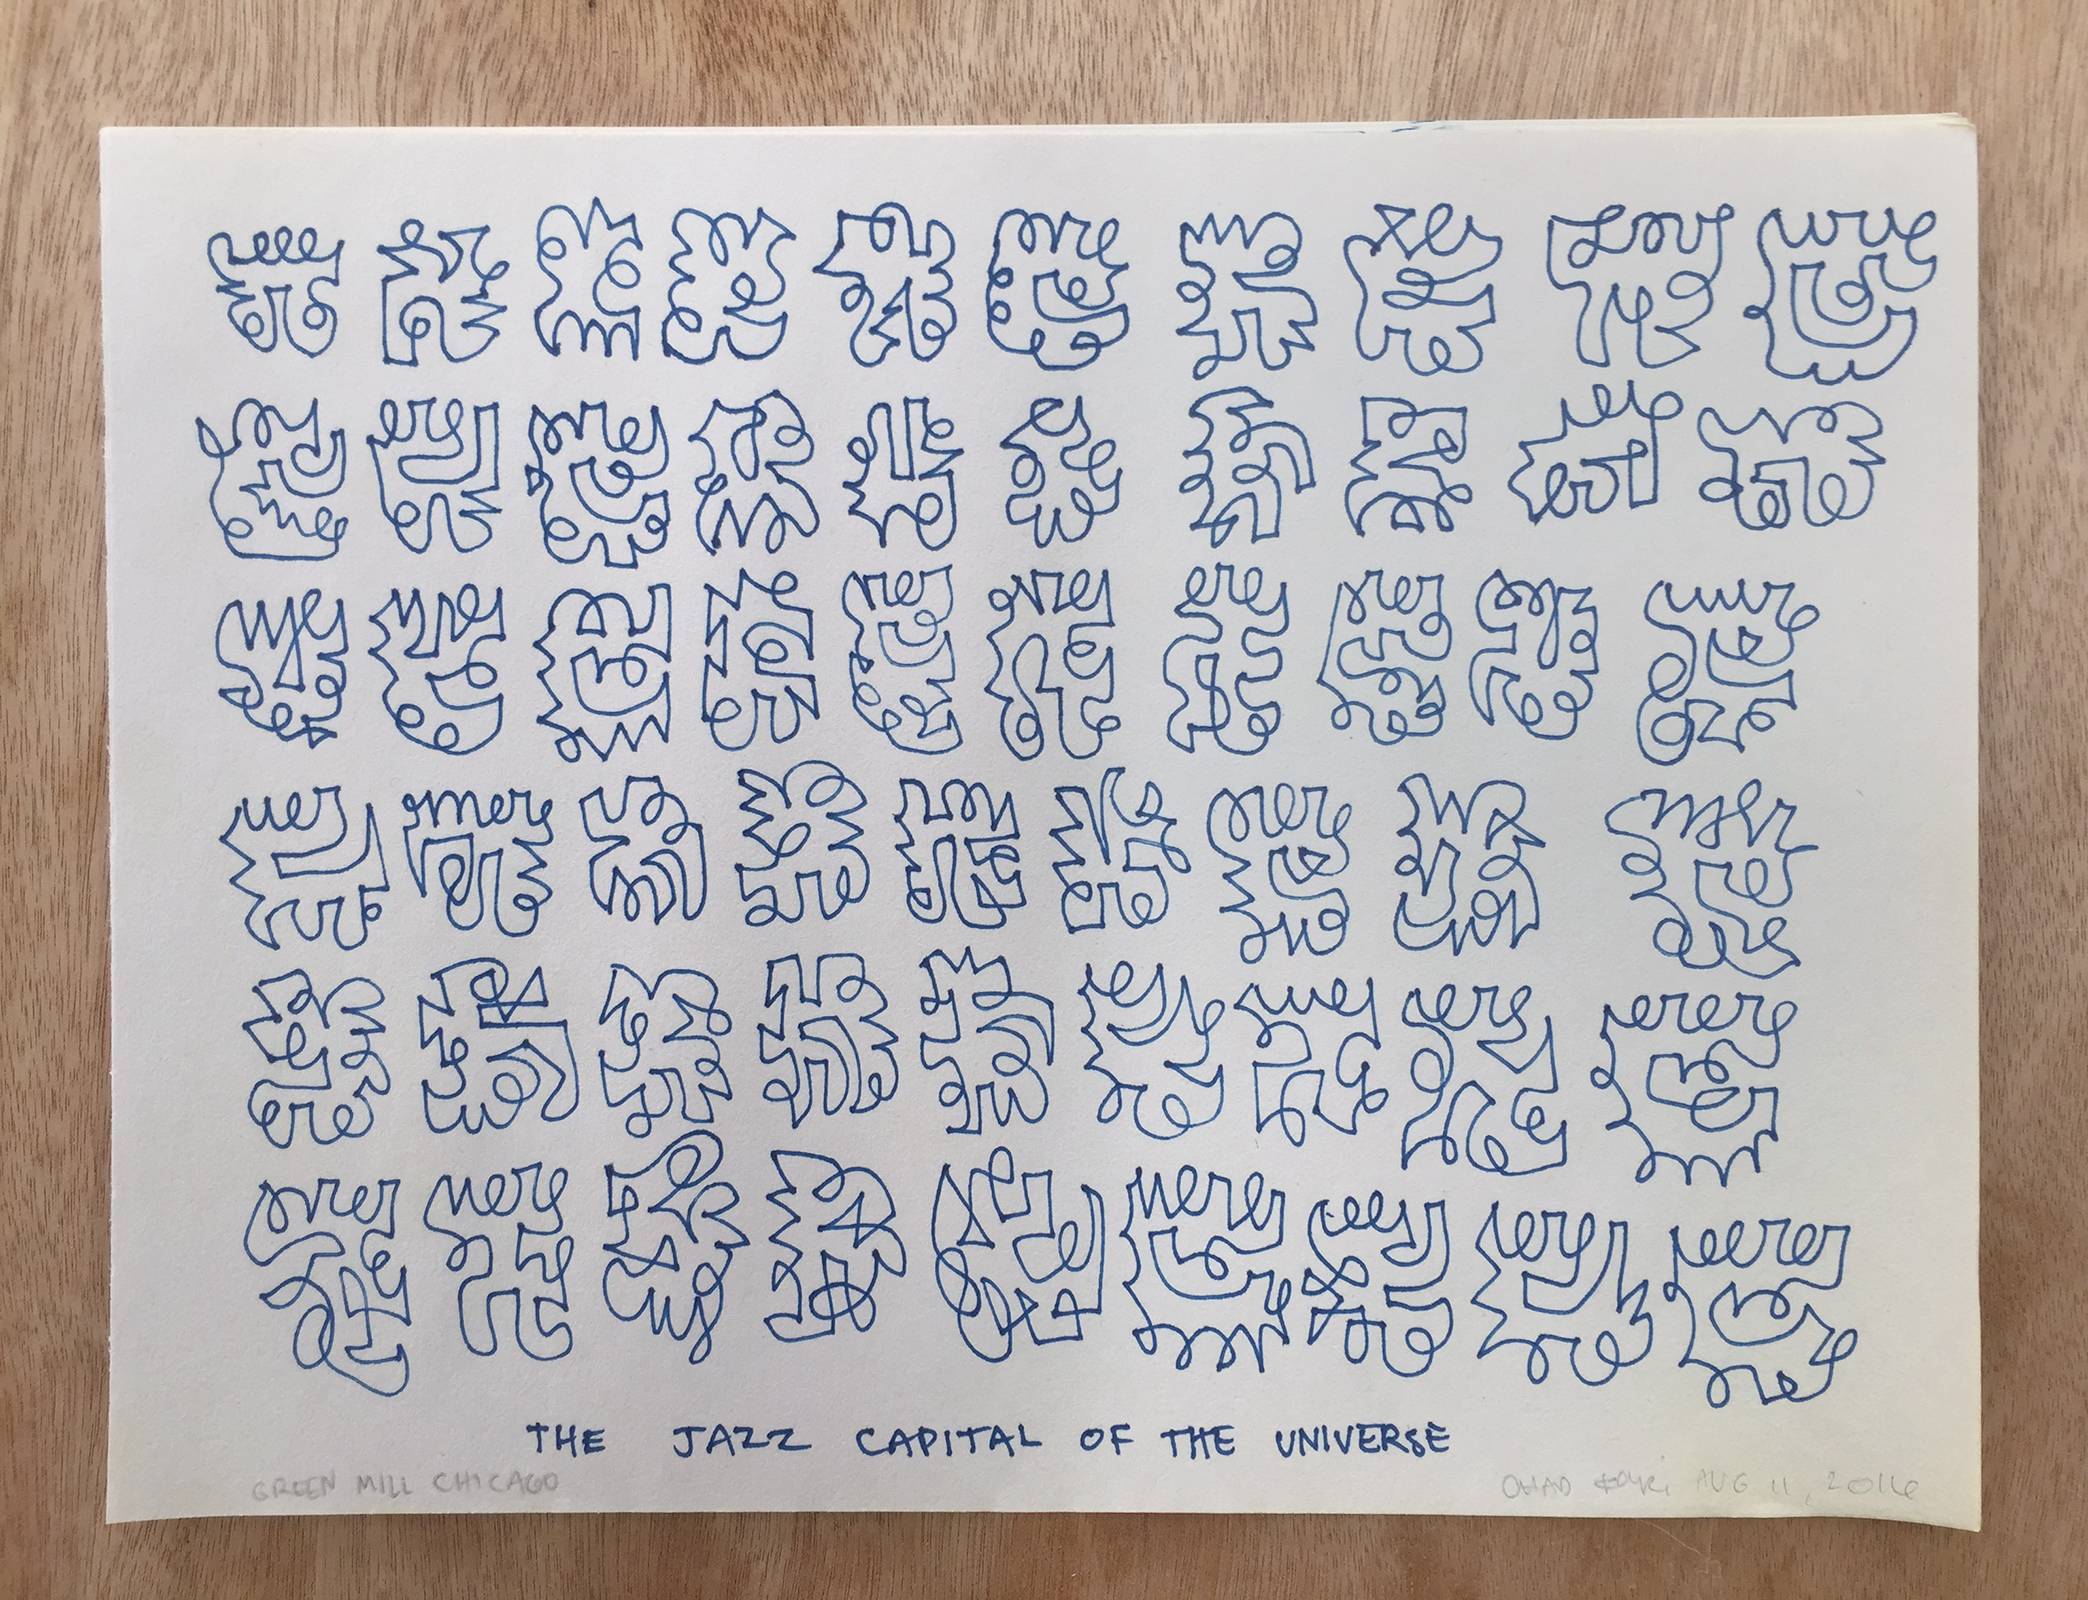 THE JAZZ CAPITAL OF THE UNIVERSE
GREEN MILL CHICAGO
OHAD AUG 11, 2016